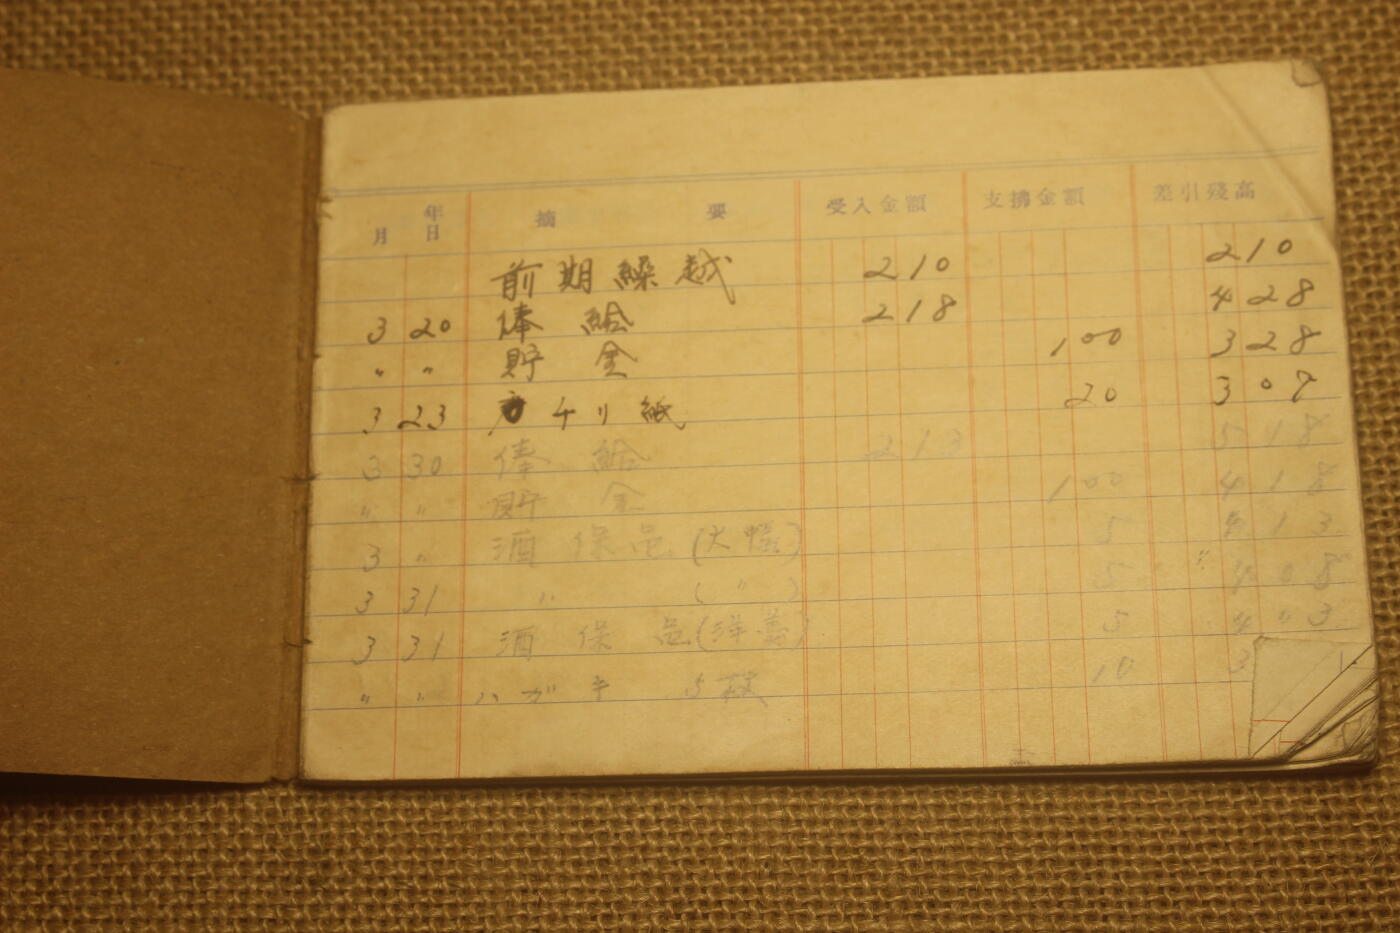 年 月 日 摘 要 受入金額 支拂金額 差引残高
前期繰越 210 210
3 20 俸給 218 428
〃 〃 貯金 100 328
3 23 チリ紙 20 308
3 30 俸給 213 518
〃 〃 貯金 100 418
3 〃 酒保品(大福) 5 413
3 31 〃 (〃) 5 408
3 31 酒保品(洋羹) 5 4〃3
〃 〃 ハガキ 5枚 10 3